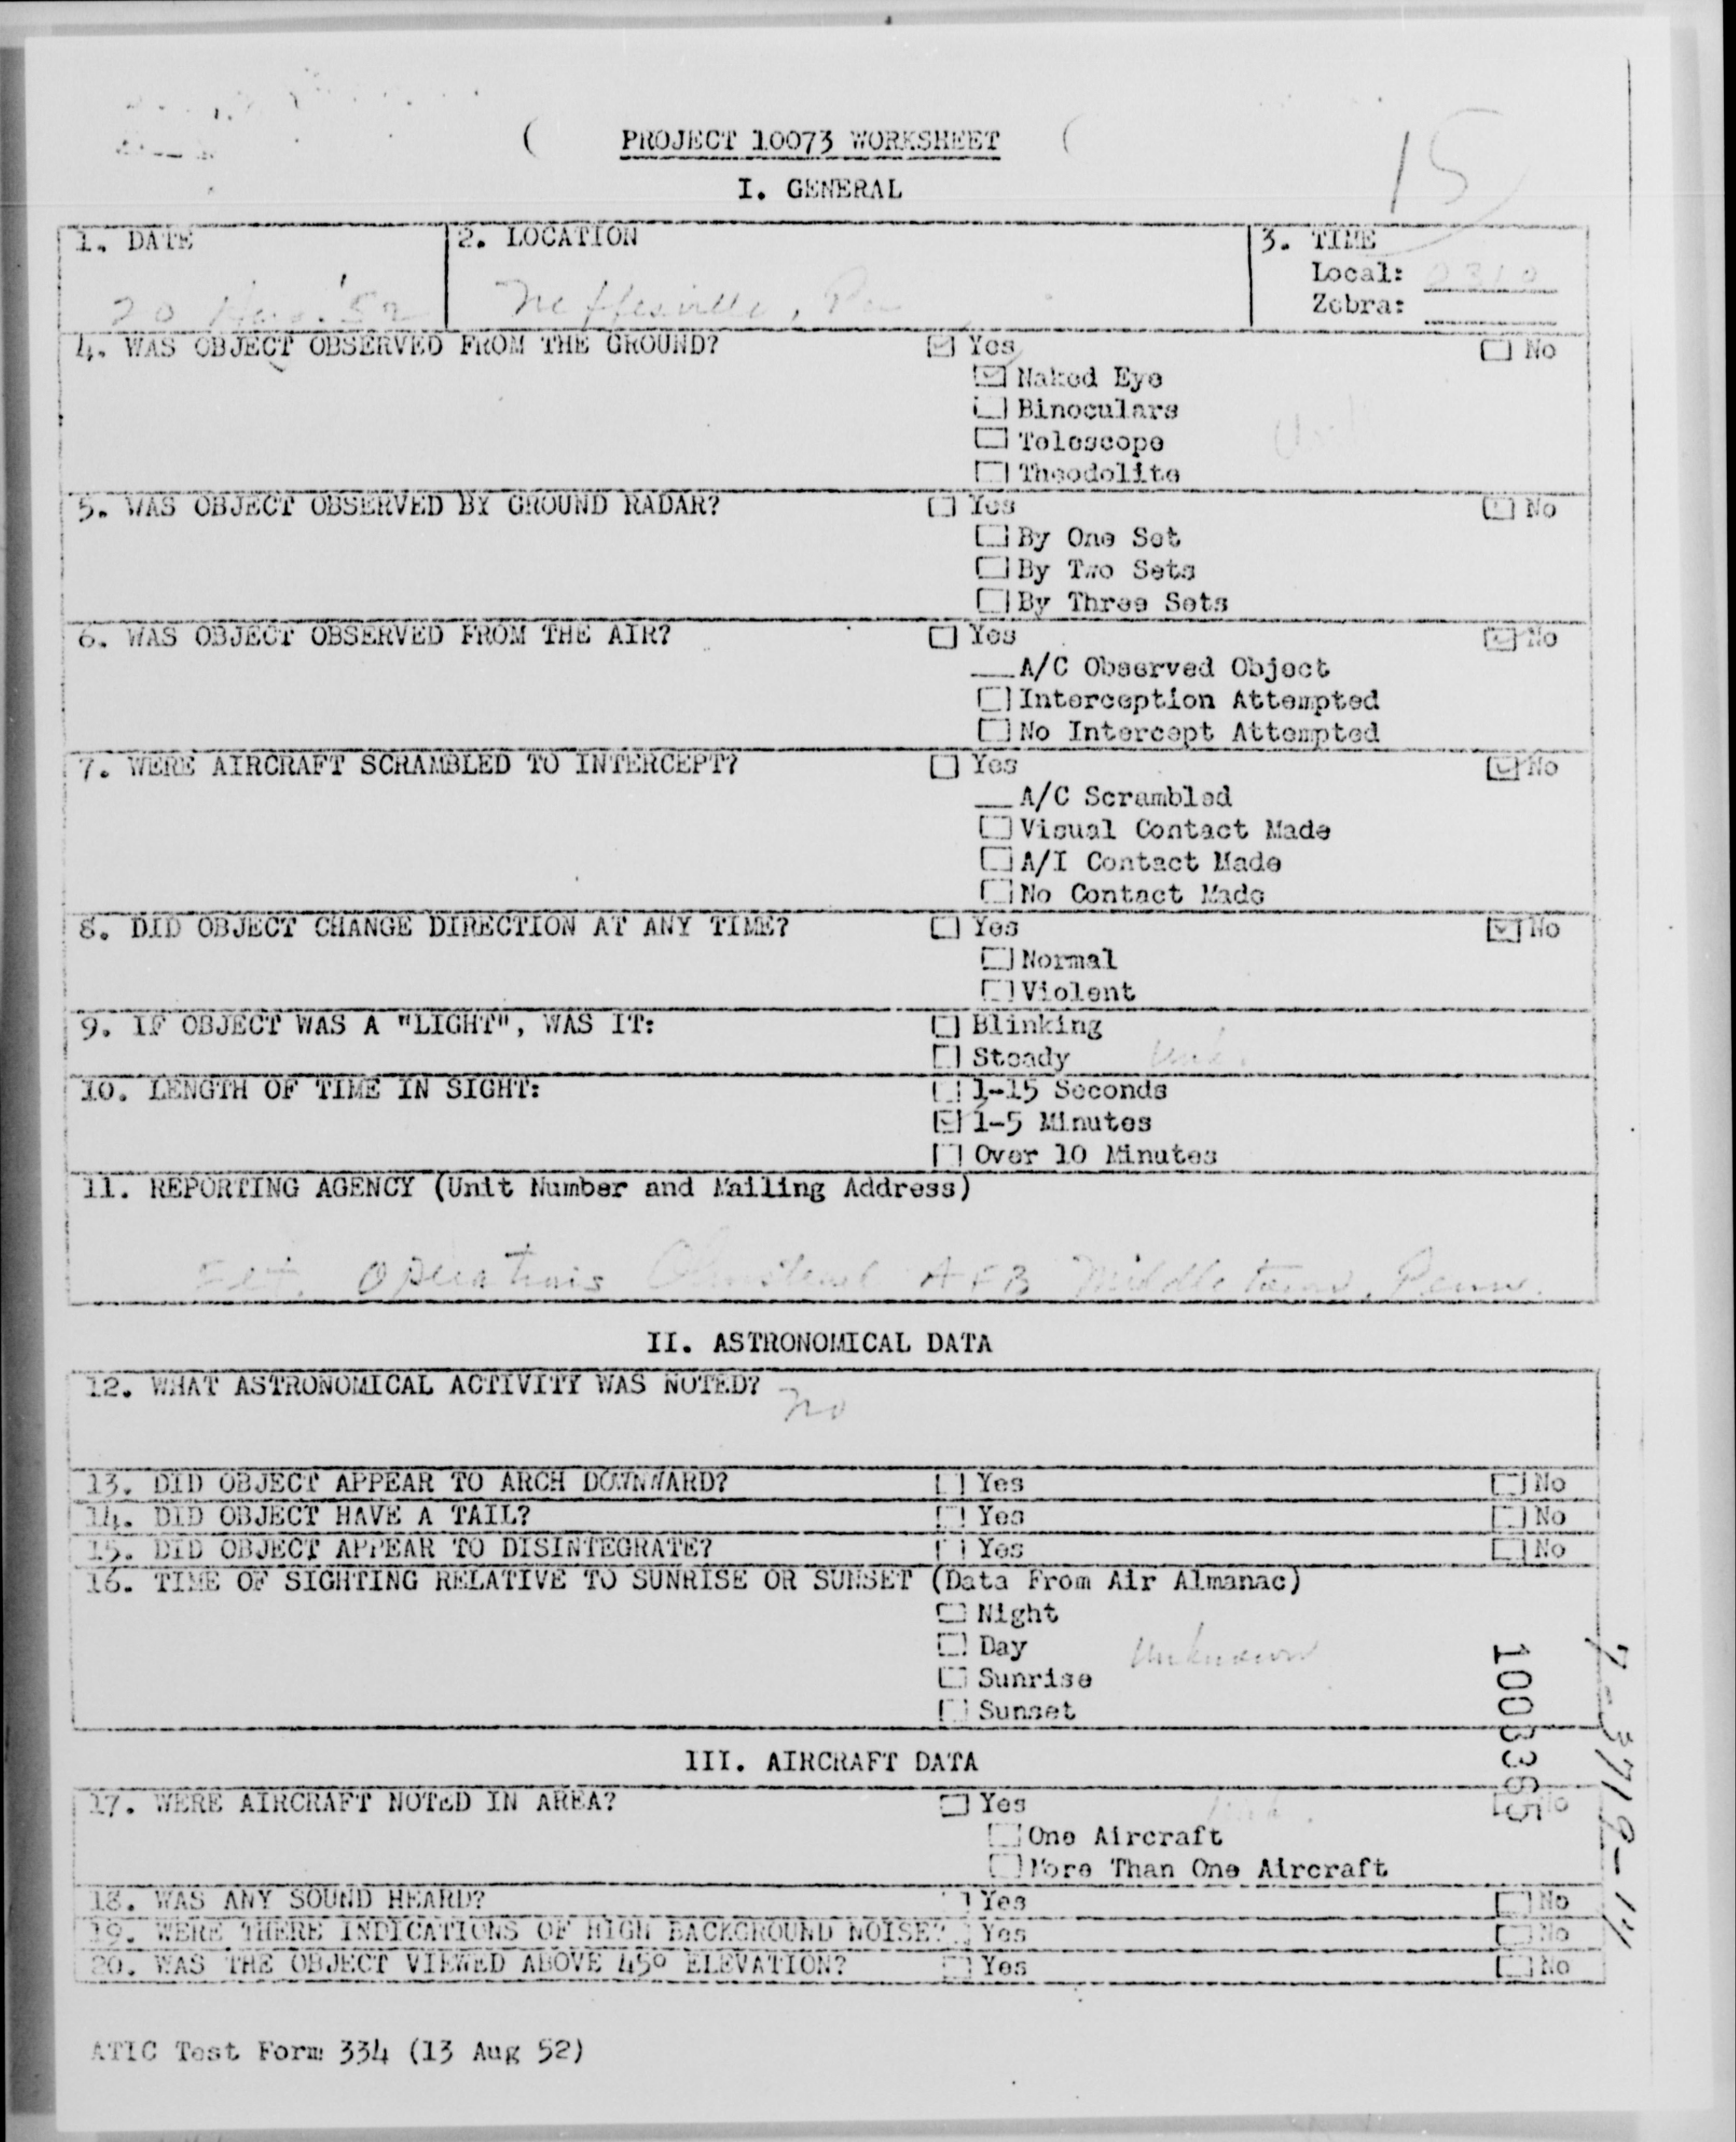 PROJECT 10073 WORKSHEET
15
I. GENERAL
1. DATE
2. LOCATION
3. TIME
Local: 2310
Zebra:
20 '52
Neffesville, Pa
4. WAS OBJECT OBSERVED FROM THE GROUND? Yes No
Naked Eye
Binoculars
Telescope
Theodolite
5. WAS OBJECT OBSERVED BY GROUND RADAR? Yes No
By One Set
By Two Sets
By Three Sets
6. WAS OBJECT OBSERVED FROM THE AIR? Yes No
A/C Observed Object
Interception Attempted
No Intercept Attempted
7. WERE AIRCRAFT SCRAMBLED TO INTERCEPT? Yes No
A/C Scrambled
Visual Contact Made
A/I Contact Made
No Contact Made
8. DID OBJECT CHANGE DIRECTION AT ANY TIME? Yes No
Normal
Violent
9. IF OBJECT WAS A "LIGHT", WAS IT: Blinking
Steady Unk.
10. LENGTH OF TIME IN SIGHT: 1-15 Seconds
1-5 Minutes
Over 10 Minutes
11. REPORTING AGENCY (Unit Number and Mailing Address)
Operations Olmstead AFB Middletown, Penn.
II. ASTRONOMICAL DATA
12. WHAT ASTRONOMICAL ACTIVITY WAS NOTED?
no
13. DID OBJECT APPEAR TO ARCH DOWNWARD? Yes No
14. DID OBJECT HAVE A TAIL? Yes No
15. DID OBJECT APPEAR TO DISINTEGRATE? Yes No
16. TIME OF SIGHTING RELATIVE TO SUNRISE OR SUNSET (Data From Air Almanac)
Night
Day Unknown
Sunrise
Sunset
1003365
7-3719-14
III. AIRCRAFT DATA
17. WERE AIRCRAFT NOTED IN AREA? Yes Unk. No
One Aircraft
More Than One Aircraft
18. WAS ANY SOUND HEARD? Yes No
19. WERE THERE INDICATIONS OF HIGH BACKGROUND NOISE? Yes No
20. WAS THE OBJECT VIEWED ABOVE 45° ELEVATION? Yes No
ATIC Test Form 334 (13 Aug 52)